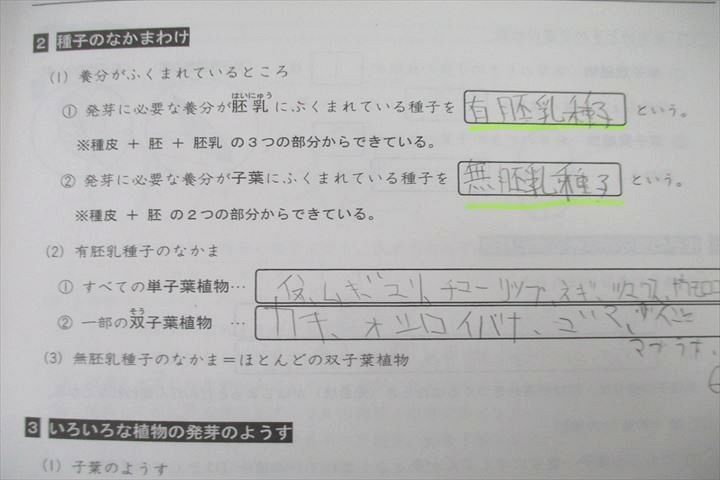 2 種子のなかまわけ
(1) 養分がふくまれているところ
① 発芽に必要な養分が胚乳にふくまれている種子を 有胚乳種子 という。
はいにゅう
※種皮 + 胚 + 胚乳 の3つの部分からできている。
② 発芽に必要な養分が子葉にふくまれている種子を 無胚乳種子 という。
※種皮 + 胚 の2つの部分からできている。
(2) 有胚乳種子のなかま
① すべての単子葉植物… ムギ ユリ チューリップ、ネギ、
② 一部の双子葉植物 … カキ、オシロイバナ、ゴマ、
そう
(3) 無胚乳種子のなかま=ほとんどの双子葉植物
3 いろいろな植物の発芽のようす
(1) 子葉のようす